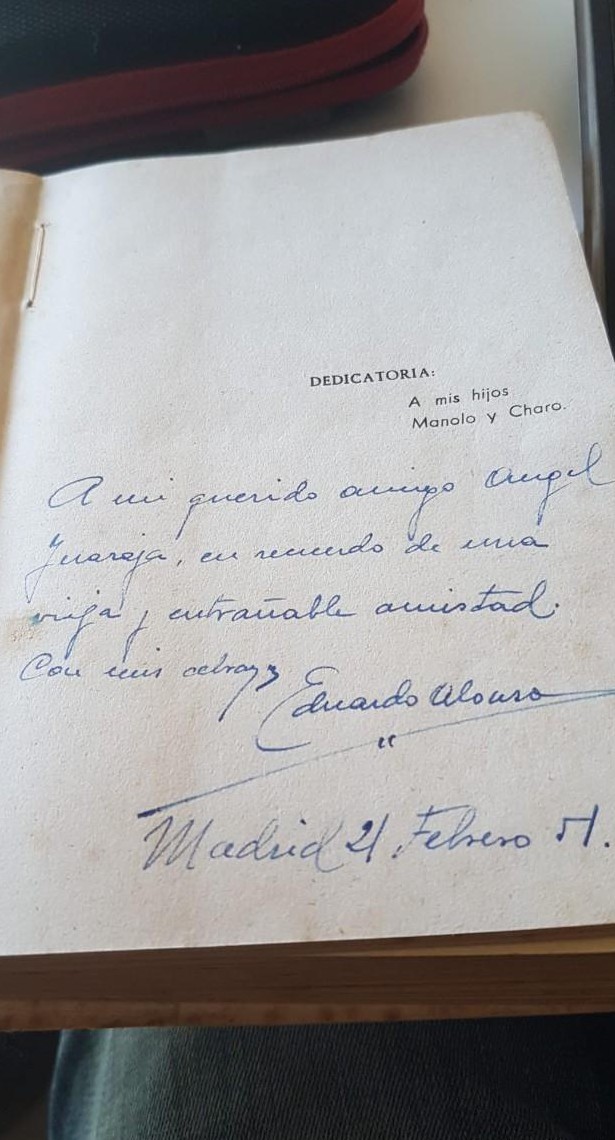 DEDICATORIA:
A mis hijos
Manolo y Charo.
A mi querido amigo Angel
en recuerdo de una
vieja y entrañable amistad.
Con mis
Eduardo Alonso
Madrid 21 Febrero 51.